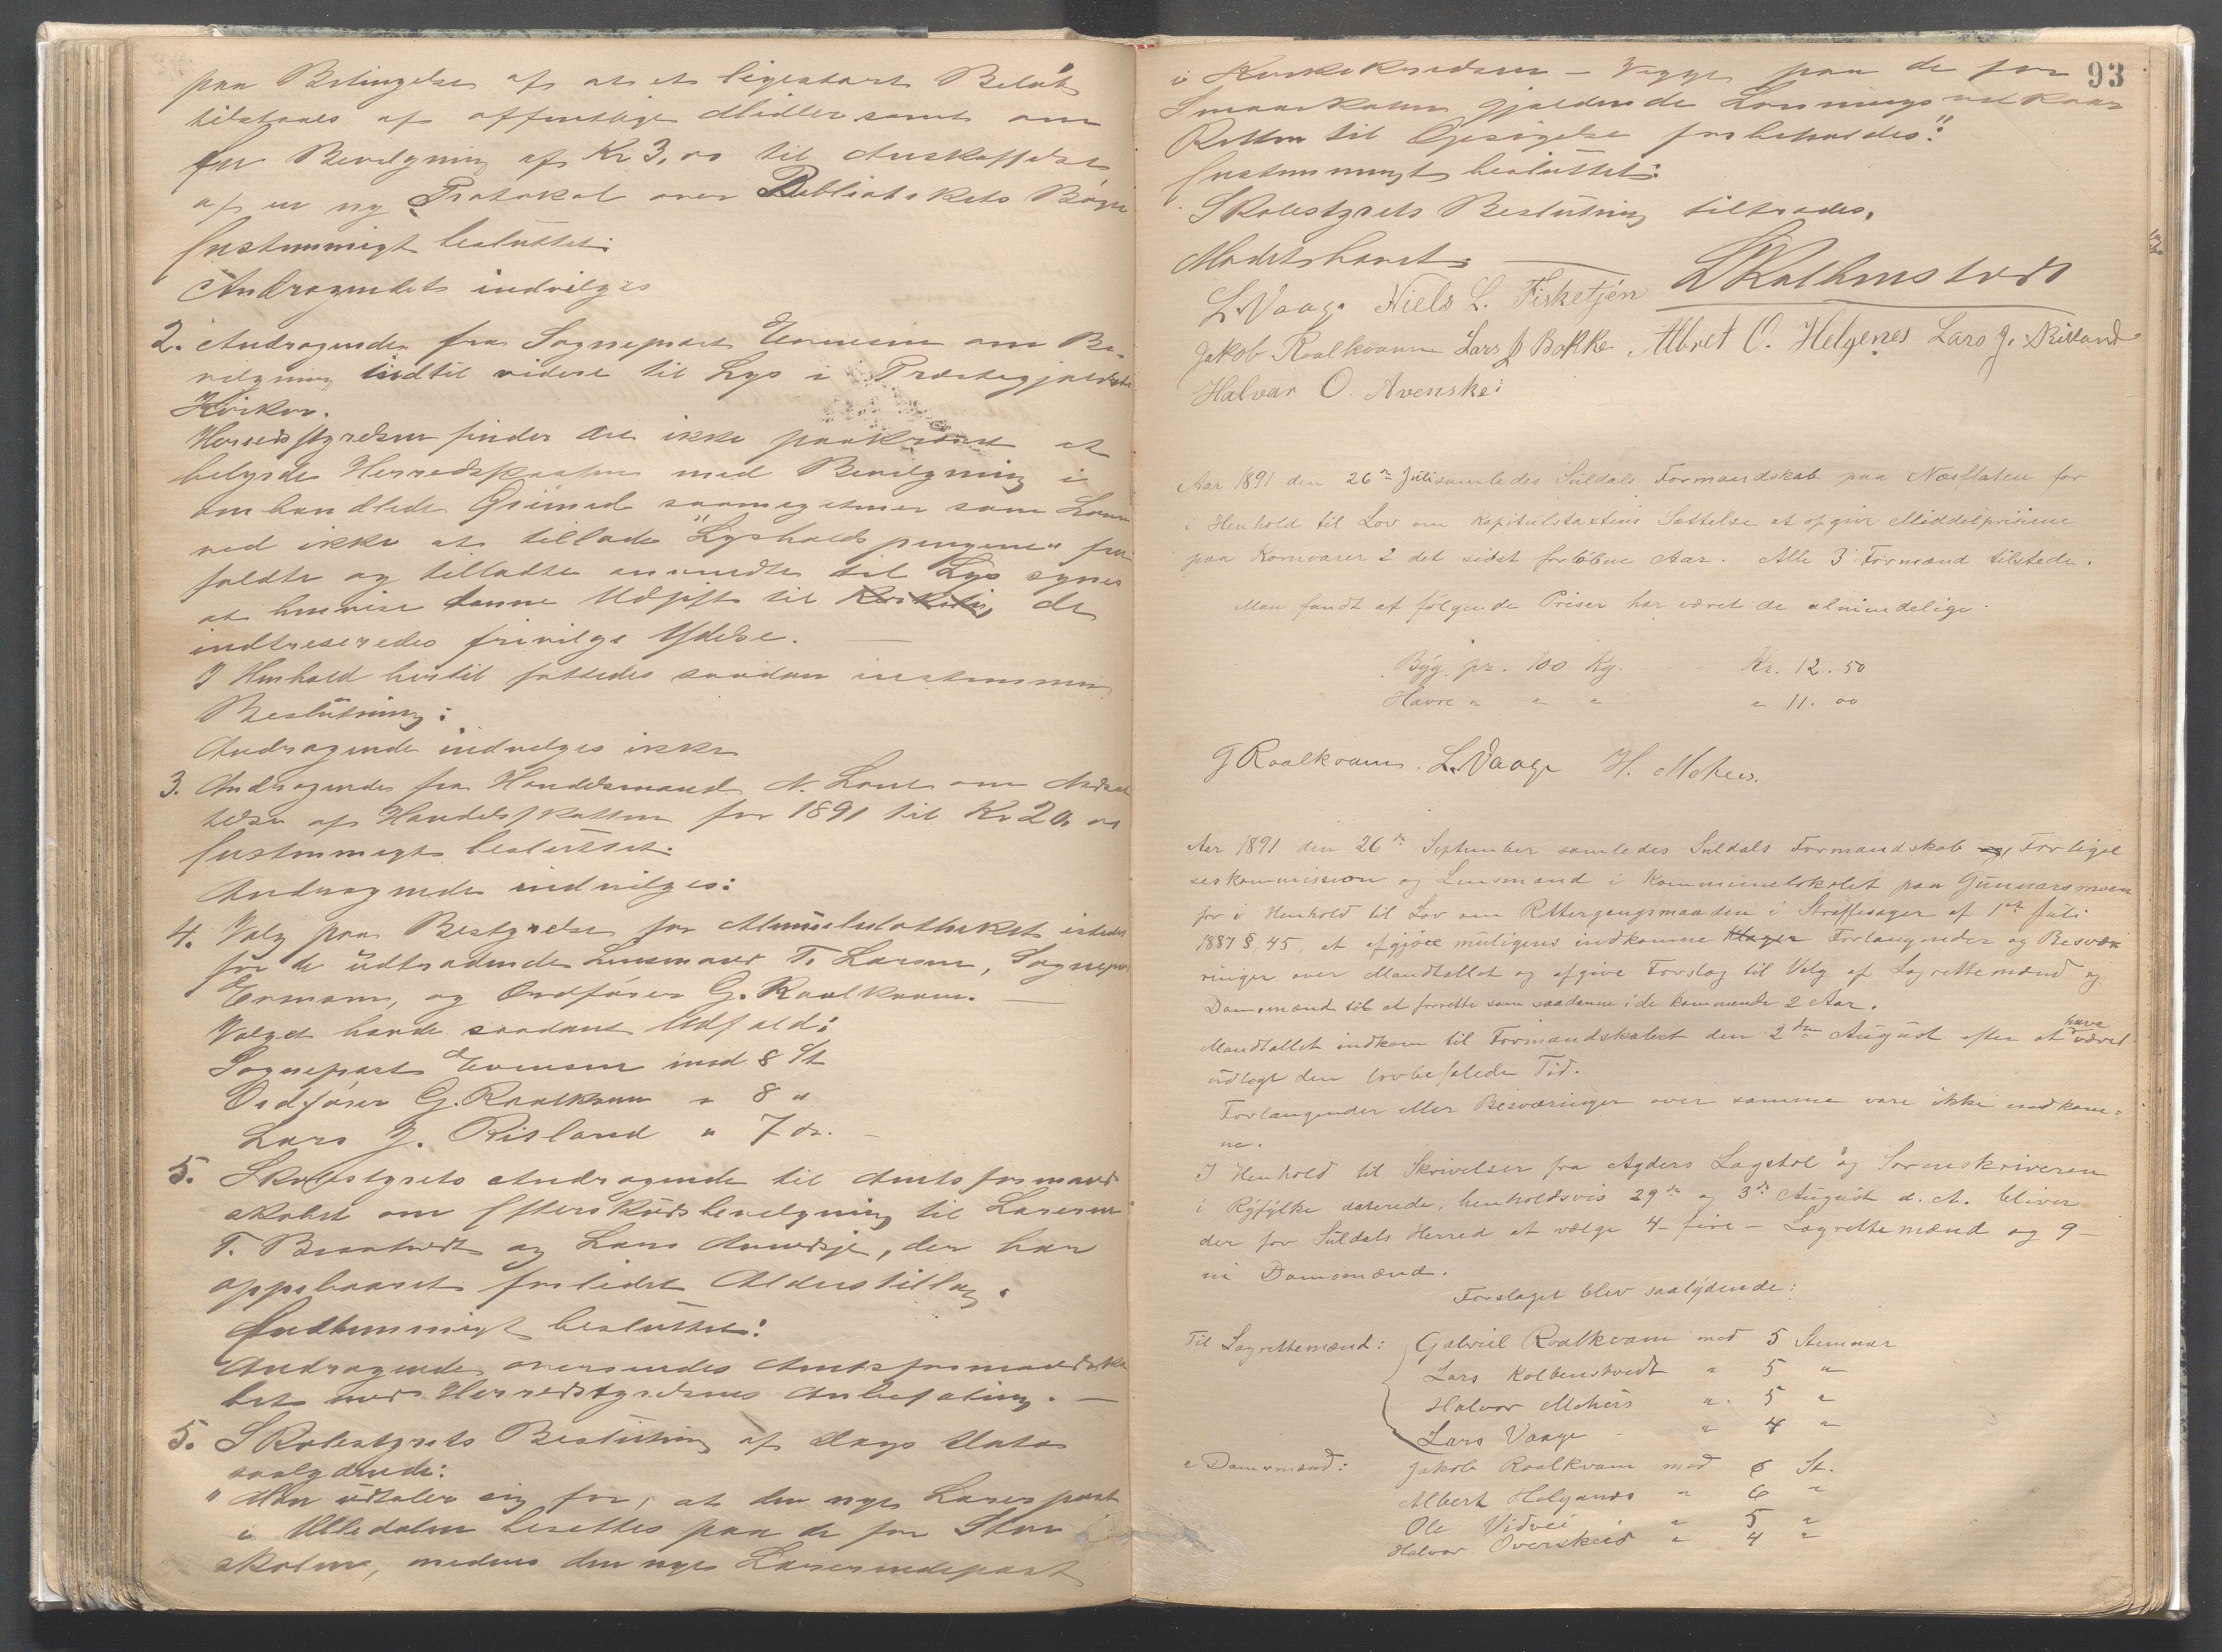 paa Betingelse af at et ligestort Beløb
tilstaaes af offentlige Midler samt om
en Bevilgning af Kr 3,00 til Anskaffelse
af en ny Protokol over Bibliothekets Bøger
Enstemmigt besluttet:
Andragendet indvilges
2. Andragende fra Sogneprest Evensen om Be-
vilgning indtil videre til Lys i Præstegjeldets
Kirker.
Herredsstyrelsen finder det ikke paakrævet at
belyrde Herredskassen med Bevilgning i
omhandlede Øiemed
ved ikke at tillade "Lysholdspengene"
og tilladte anvendte til Lys synes
at henvise denne Udgift til de
indtreseredes frivilge Ydelse.
I Henhold hertil fattedes saadan enstemmig
Beslutning:
Andragende indvilges ikke
3. Andragende fra Handelsmand N. Lone om Nedsæt
telse af Handelsskatten for 1891 til Kr 20,00
Enstemmigt besluttet:
Andragende indvilges:
4. Valg paa Bestyrelse for Almuebibliotheket istedet
for de udtrædende Lensmand T. Larsen, Sognepr
Evensen, og Ordfører G. Raalkvam.
Valget havde saadant Udfald:
Sogneprest Evensen med 8 St
Ordfører G. Raalkvam " 8 "
Lars J. Risland " 7 "
5. Skolestyrets Andragende til Amtsformand
skabet om Efterskudsbevilgning til Lærerne
T. Braatvedt og Lars, der har
oppebaaret forlidet Alderstillæg.
Endstemmigt besluttet:
Andragende oversendes Amtsformandska
bet med Herredstyrelsens Anbefaling.
5. Skolestyrets Beslutning af Dags Dato
saalydende:
"Man udtaler sig for, at den nye Lærerpost
i Ulledalen besettes paa de for Stor
skolen, medens den nye Lærerindepost
93
i Kirkekredsen – paa de for
Smaaskolen gjældende Lønningsvilkaar
Retten til Opsigelse forbeholdes."
Enstemmigt besluttet:
Skolestyrets Beslutning tiltrædes.
Mødet hævet.
L Kolbenstvedt
L. Vaage Niels L. Fisketjøn
Jakob Raalkvam Lars Bakke Albret O. Helgenes Lars J. Risland
Halvar O. Avenske:
Aar 1891 den 26de Juli samledes Suldals Formandskab paa Næsflaten for
i Henhold til Lov om Kapitulstaxtens Sættelse at opgive Middelpriserne
paa Kornvarer i det sidst forløbne Aar. Alle 3 Formænd tilstede.
Man fandt at følgende Priser har været de almindelige.
Byg pr. 100 Kg. Kr. 12.50
Havre " " " " 11.00
G Raalkvam. L. Vaage H. Mehus.
Aar 1891 den 26de September samledes Suldals Formandskab og Forligel
seskommission og Lensmand i Kommunelokalet paa Gunnarsmoen
for i Henhold til Lov om Rettergangsmaaden i Straffesager af 1ste Juli
1887 §. 45, at afgjøre muligens indkomne Klager Forlangender og Besvæ
ringer over Mandtallet og afgive Forslag til Valg af Lagrettemænd og
Domsmænd til at forrette som saadanne i de kommende 2 Aar.
Mandtallet indkom til Formandskabet den 2den August efter at have været
udlagt den lovbefalede Tid.
Forlangender eller Besværinger over samme vare ikke indkom=
ne.
I Henhold til Skrivelser fra Agders Lagstol og Sorenskriveren
i Ryfylke daterede, henholdsvis 29de og 3de August d. A. bliver
der for Suldals Herred at vælge 4 – fire – Lagrettemænd og 9 –
ni Domsmænd.
Forslaget blev saalydende:
Til Lagrettemænd: Gabriel Raalkvam med 5 Stemmer
Lars Kolbenstvedt " 5 "
Halvor Mehus " 5 "
Lars Vaage " 4 "
" Domsmænd: Jakob Raalkvam med 6 St.
Albert Helgenæs " 6 "
Ole Vidvei " 5 "
Halvor Overskeid " 4 "